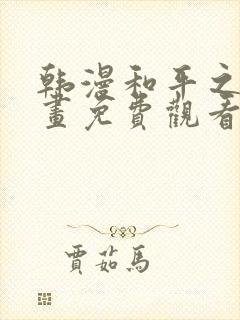 韩漫和平之
畫免費觀看
賈茹馬